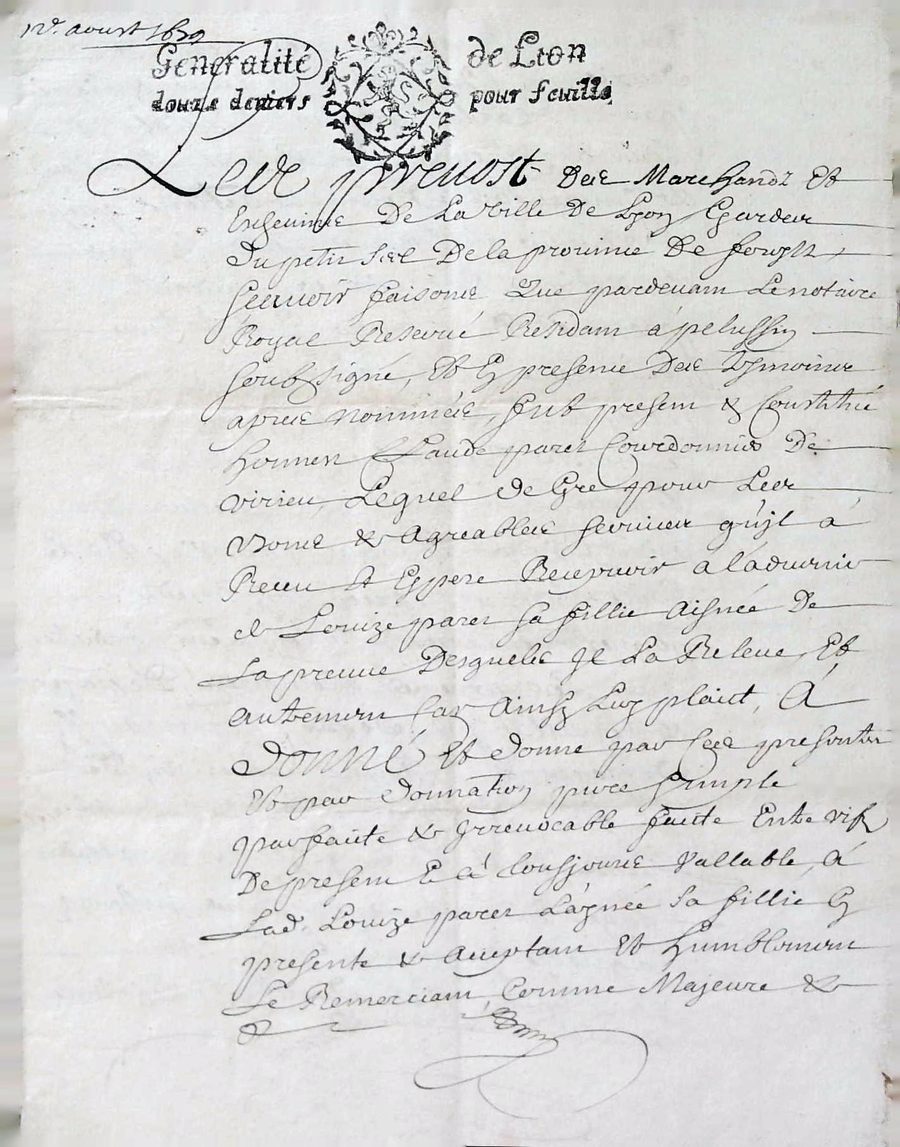 12e. aoust 1679
Generalité de Lion
douze deniers pour feuille
Les prevost Des Marchandz Et
Eschevins De La Ville De Lyon Gardes
Du petit Scel De la province De forestz
scavoir faisons Que pardevant Le notaire
Royal Reservé Residam a pelussin
soubsigné, Et En presence Des Tesmoins
apres nommés, fust present & Constitué
honneste Claude paret Courdonnier De
virieu, Lequel de Gré pour Les
bons & Agreables services qu'il a
Receu Et Espere Recepvoir a l'advenir
de Louize paret sa fillie Aisnée De
La preuve Desquels Il La Releve, Et
autrement Car Ainsy Luy plaict, A
DONNÉ Et donne par Ses presentes
Et par donnation pure simple
parfaite & Irrevocable faite Entre vifz
De present Et a tousjours vallable, a
Lad. Louize paret L'aynée sa fillie Cy
presente & Acceptant Et humblement
Le Remerciant, Comme Majeure &